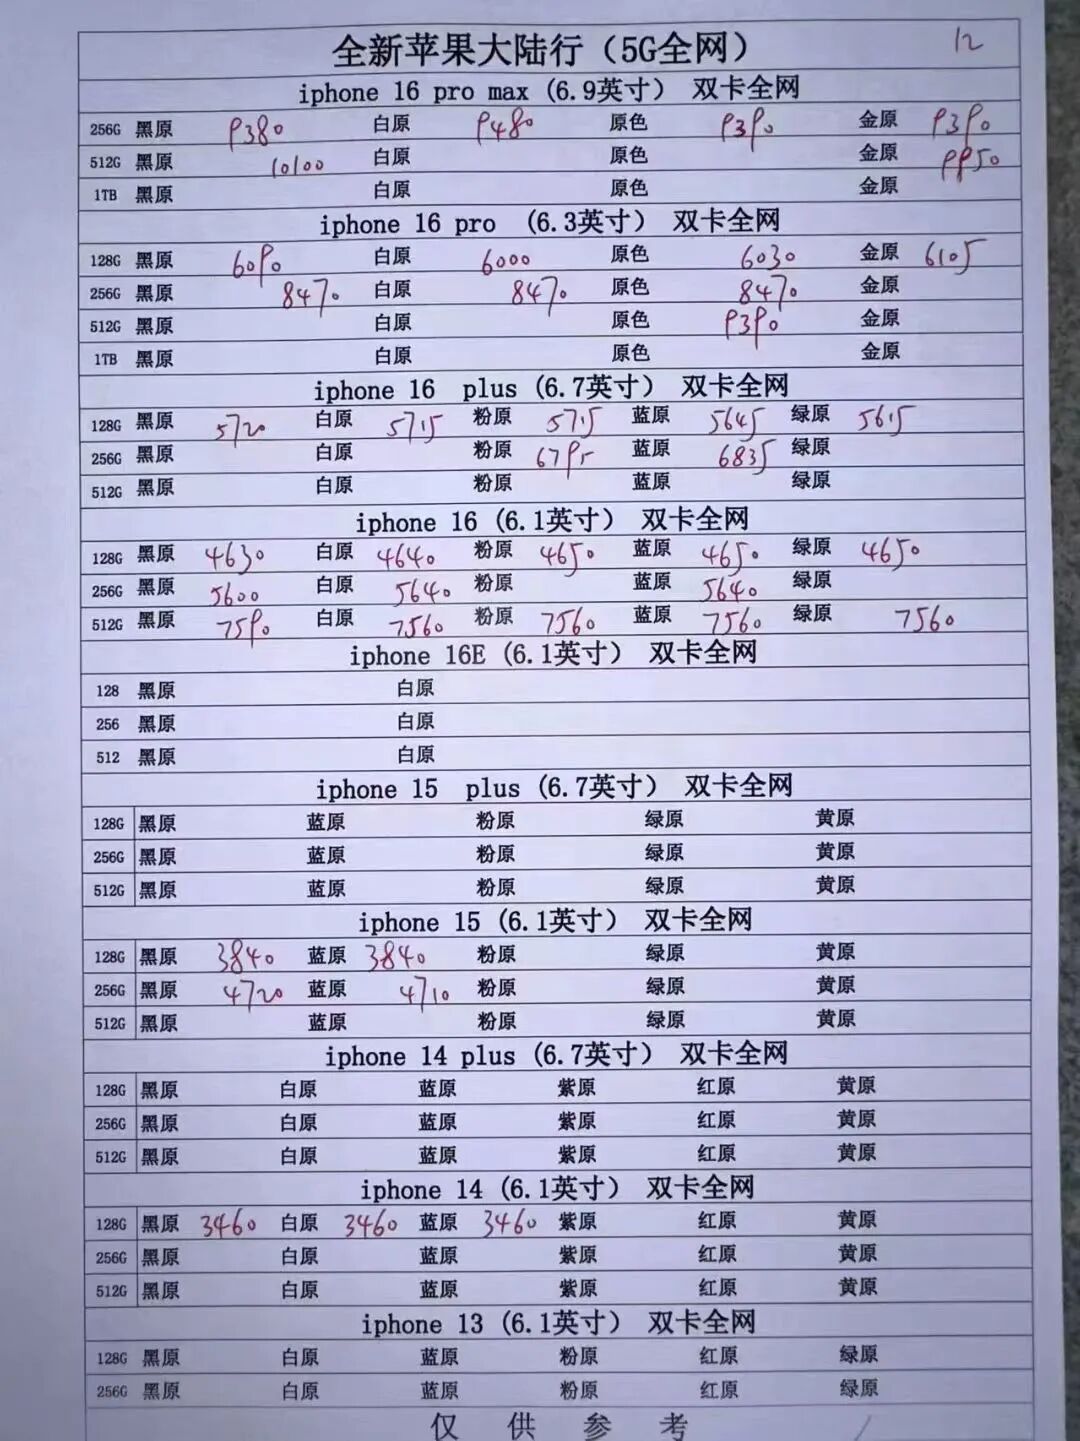 全新苹果大陆行（5G全网） 12
iphone 16 pro max (6.9英寸） 双卡全网
256G 黑原 9380 白原 9480 原色 9390 金原 9390
512G 黑原 10100 白原 原色 金原 9950
1TB 黑原 白原 原色 金原
iphone 16 pro （6.3英寸） 双卡全网
128G 黑原 6090 白原 6000 原色 6030 金原 6105
256G 黑原 8470 白原 8470 原色 8470 金原
512G 黑原 白原 原色 9390 金原
1TB 黑原 白原 原色 金原
iphone 16 plus (6.7英寸） 双卡全网
128G 黑原 5720 白原 5715 粉原 5715 蓝原 5645 绿原 5615
256G 黑原 白原 粉原 6795 蓝原 6835 绿原
512G 黑原 白原 粉原 蓝原 绿原
iphone 16 (6.1英寸） 双卡全网
128G 黑原 4630 白原 4640 粉原 4650 蓝原 4650 绿原 4650
256G 黑原 5600 白原 5640 粉原 蓝原 5640 绿原
512G 黑原 7590 白原 7560 粉原 7560 蓝原 7560 绿原 7560
iphone 16E (6.1英寸） 双卡全网
128 黑原 白原
256 黑原 白原
512 黑原 白原
iphone 15 plus (6.7英寸） 双卡全网
128G 黑原 蓝原 粉原 绿原 黄原
256G 黑原 蓝原 粉原 绿原 黄原
512G 黑原 蓝原 粉原 绿原 黄原
iphone 15 (6.1英寸） 双卡全网
128G 黑原 3840 蓝原 3840 粉原 绿原 黄原
256G 黑原 4720 蓝原 4710 粉原 绿原 黄原
512G 黑原 蓝原 粉原 绿原 黄原
iphone 14 plus (6.7英寸） 双卡全网
128G 黑原 白原 蓝原 紫原 红原 黄原
256G 黑原 白原 蓝原 紫原 红原 黄原
512G 黑原 白原 蓝原 紫原 红原 黄原
iphone 14 (6.1英寸） 双卡全网
128G 黑原 3460 白原 3460 蓝原 3460 紫原 红原 黄原
256G 黑原 白原 蓝原 紫原 红原 黄原
512G 黑原 白原 蓝原 紫原 红原 黄原
iphone 13 (6.1英寸） 双卡全网
128G 黑原 白原 蓝原 粉原 红原 绿原
256G 黑原 白原 蓝原 粉原 红原 绿原
仅供参考